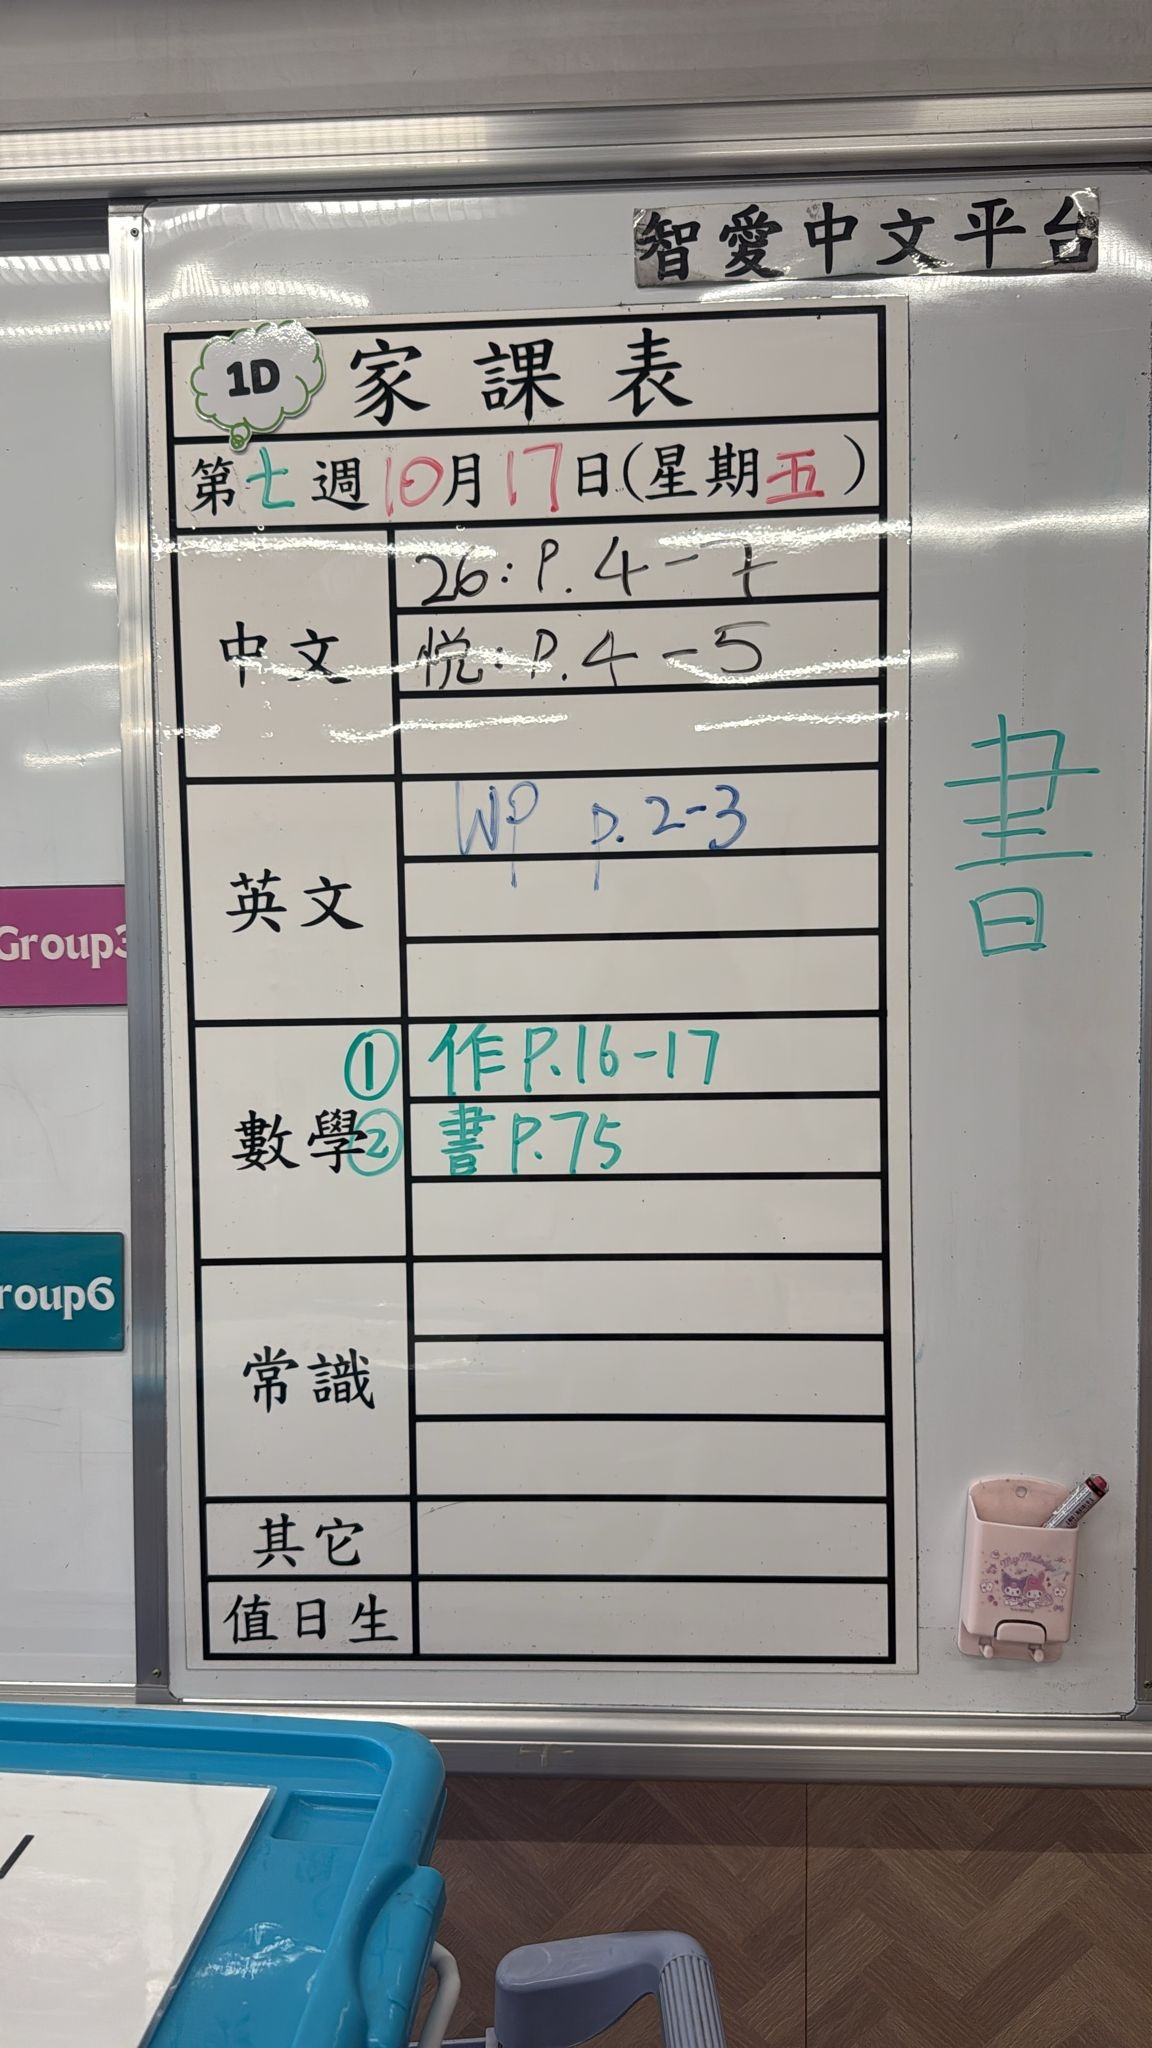 智愛中文平台
1D 家課表
第七週10月17日(星期五)
中文
26: P. 4-7
悦: P. 4-5
英文
WP p. 2-3
數學
① 作 P.16-17
② 書 P.75
常識
其它
值日生
書
Group3
roup6
My Melody